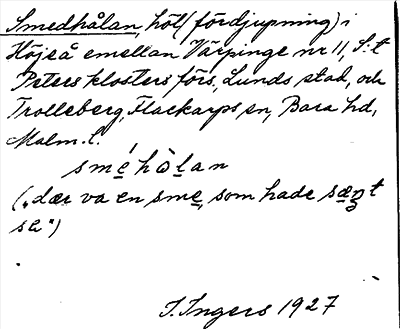 Smedhålan, höl (fördjupning) i
Höjeå emellan Värpinge nr 11, S:t
Peters klosters förs., Lunds stad, och
Trolleberg, Flackarps sn, Bara hd,
Malm. l.
smé hòlan
("dær va en sme, som hade sænt
se")
I. Ingers 1927